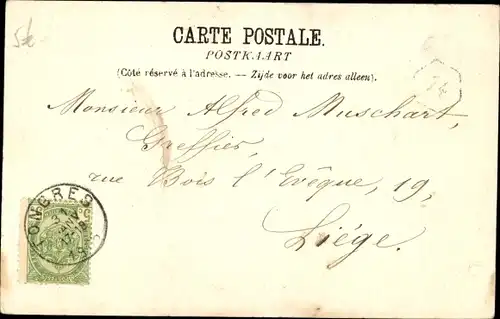 5k
CARTE POSTALE.
POSTKAART
(Côté réservé à l'adresse. — Zijde voor het adres alleen).
74
Monsieur Alfred Muschart,
Greffier,
rue Bois l'Évêque, 19,
Liége.
LOMBRES